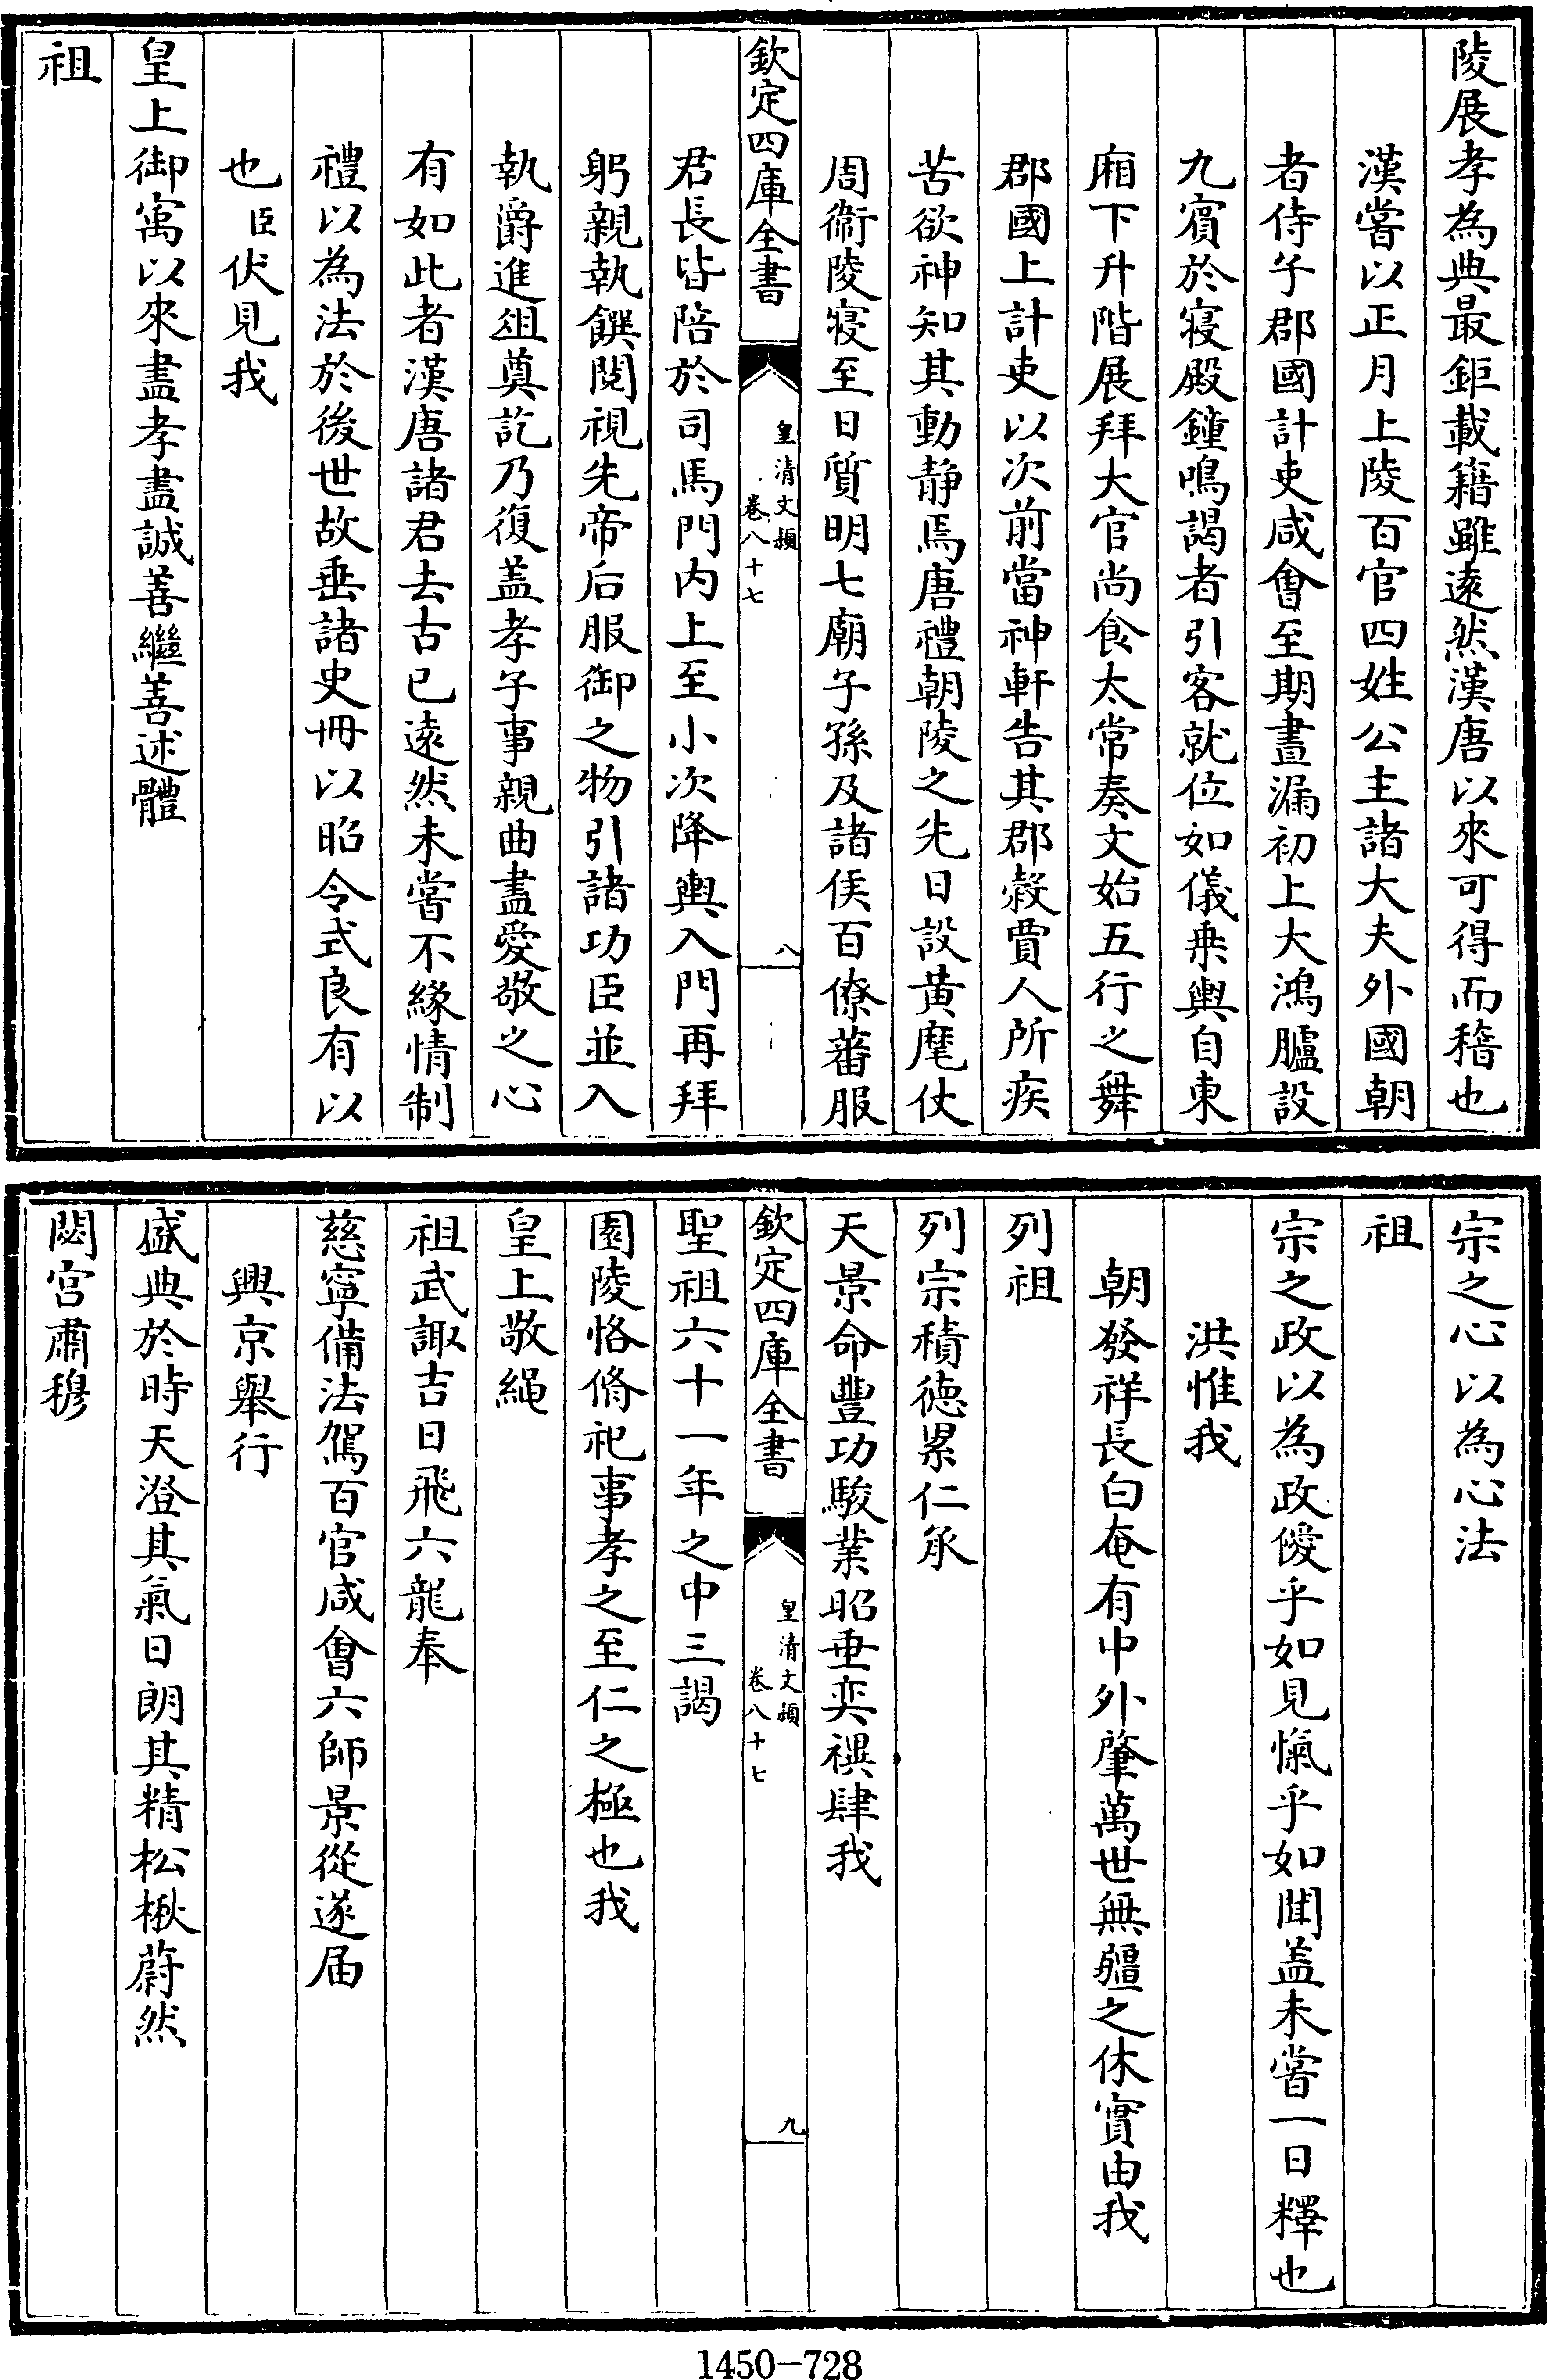 陵展孝為典最鉅載籍雖遠然漢唐以來可得而稽也
漢嘗以正月上陵百官四姓公主諸大夫外國朝
者侍子郡國計吏咸會至期晝漏初上大鴻臚設
九賓於寢殿鐘鳴謁者引客就位如儀乘輿自東
廂下升階展拜大官尚食太常奏文始五行之舞
郡國上計吏以次前當神軒告其郡穀賈人所疾
苦欲神知其動静焉唐禮朝陵之先日設黄麾仗
周衛陵寢至日質明七廟子孫及諸侯百僚蕃服
欽定四庫全書
皇清文穎
卷八十七
八
君長皆陪於司馬門内上至小次降輿入門再拜
躬親執饌閱視先帝后服御之物引諸功臣並入
執爵進俎奠訖乃復盖孝子事親曲盡愛敬之心
有如此者漢唐諸君去古已遠然未嘗不緣情制
禮以為法於後世故垂諸史冊以昭令式良有以
也臣伏見我
皇上御寓以來盡孝盡誠善繼善述體
祖
宗之心以為心法
祖
宗之政以為政僾乎如見愾乎如聞盖未嘗一日釋也
洪惟我
朝發祥長白奄有中外肇萬世無疆之休實由我
列祖
列宗積德累仁承
天景命豐功駿業昭垂奕禩肆我
欽定四庫全書
皇清文穎
卷八十七
九
聖祖六十一年之中三謁
園陵恪脩祀事孝之至仁之極也我
皇上敬繩
祖武諏吉日飛六龍奉
慈寧備法駕百官咸會六師景從遂届
興京舉行
盛典於時天澄其氣日朗其精松楸蔚然
閟宫肅穆
1450-728